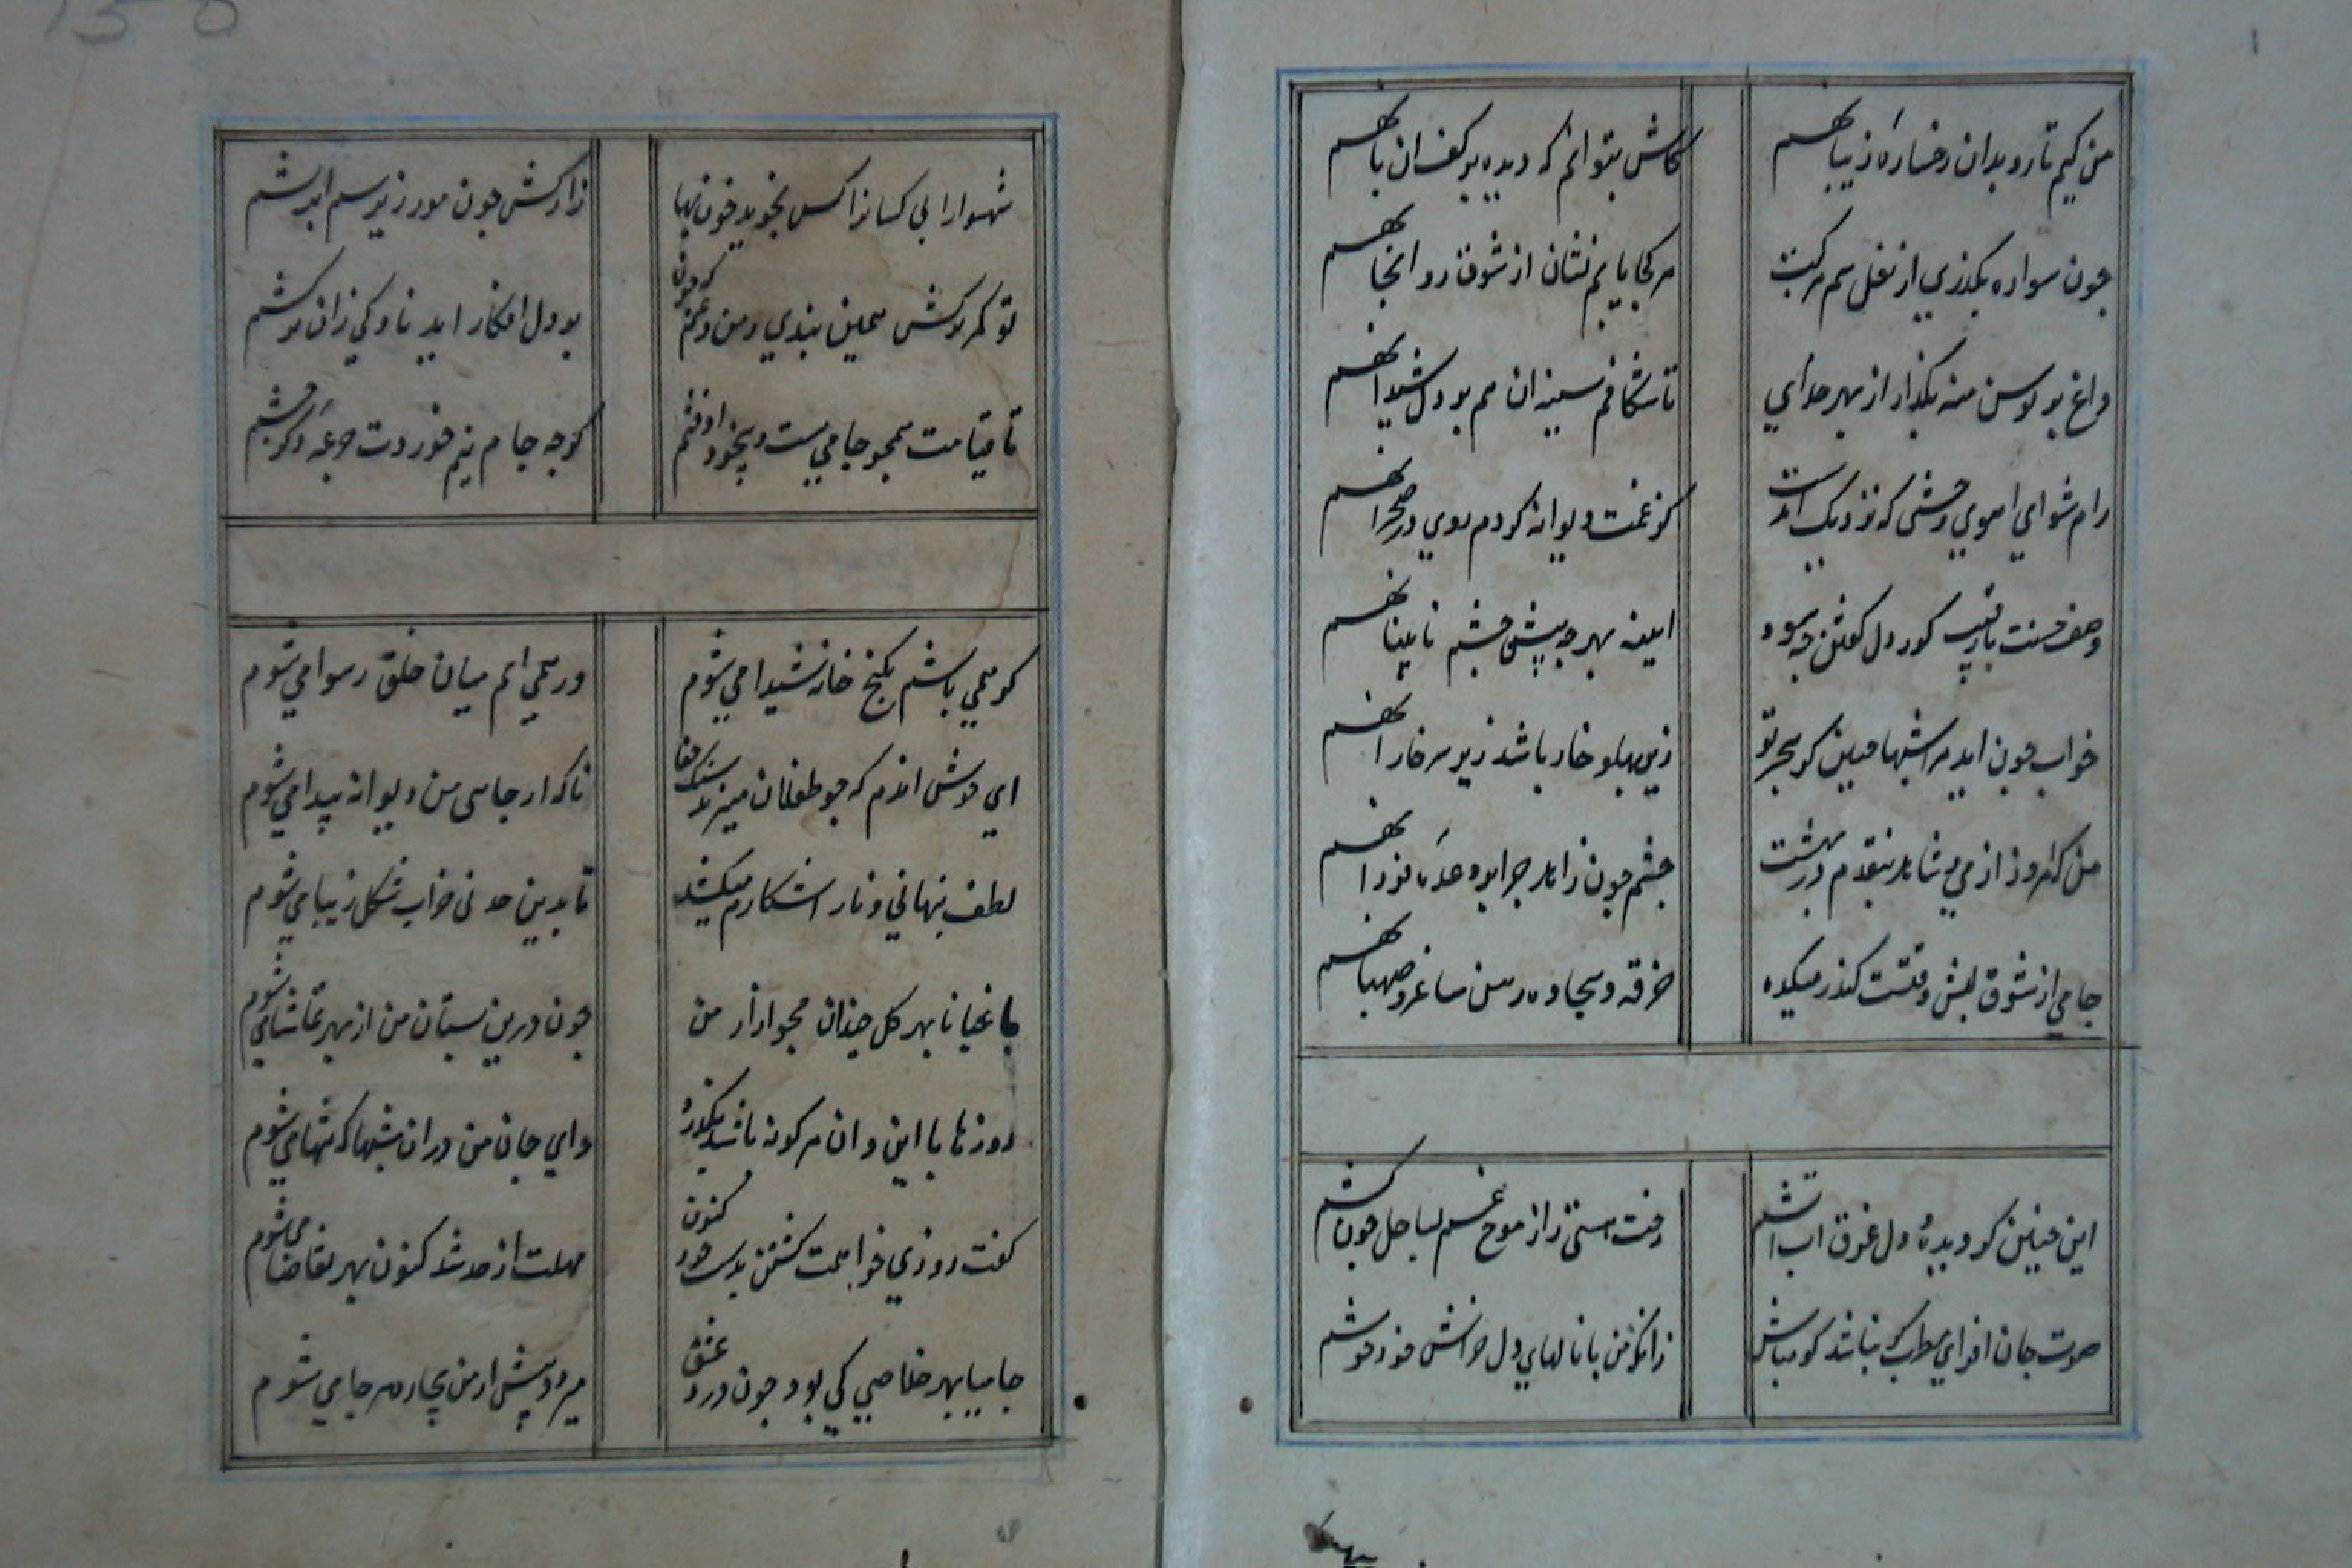 من کیم تا رو بدان رخساره زیبا نهم
کاش بتوانم که دیده بر کف آن پا نهم
چون سواره بگذری از نعل سم مرکبت
هر کجا یابم نشان از شوق رو آنجا نهم
داغ بر بوسن منه بگذار از بهر خدای
تا شکافم سینه آن هم بر دل شیدا نهم
رام شو ای آهوی وحشی که نزدیک است
کز غمت دیوانه کردم روی در صحرا نهم
وصف حسنت با رقیب کور دل گفتن چه سود
آینه بهر چه پیش چشم نابینا نهم
خواب چون آید مرا شبها چنین کز هجر تو
زیر پهلو خار باشد زیر سر خارا نهم
من که امروز از می و شاهد بنقدم در بهشت
چشم چون زاهد چرا بر وعده فردا نهم
جامی از شوق لبش وقتست کندر میکده
خرقه و سجاده رهن ساغر و صهبا نهم
این چنین کز دیده و دل غرق آب آتشم
رخت هستی را ز موج غم بساحل چون کشم
صوت جان افزای مطرب گر نباشد گو مباش
زانکه من با نالهای دل خراش خود خوشم
شهسوارا بی کسانرا کس نجوید خونبها
زار کش چون مور زیر سم ابرشم
تو کمر ترکش همین بندی و من در غم که چون
بر دل افکار آید ناوکی زان ترکشم
تا قیامت همچو جامی مست و بیخود اوفتم
گر چه جام نیم خوردت جرعه دیگر چشم
گر همی باشم بکنج خانه شیدا می شوم
ور همی آیم میان خلق رسوا می شوم
ای خوش آندم که چو طفلان میزند سنگ جفا
ناگه از جایی من دیوانه پیدا می شوم
لطف پنهانی و ناز آشکارم میکشد
تا بدین حد نی خراب شکل زیبا می شوم
باغبانا بهر گل چندان مجو آزار من
چون درین بستان من از بهر تماشا می شوم
روزها با این و آن هر گونه باشد بگذرد
وای جان من در آن شبها که تنها می شوم
گفت روزی خواهمت کشتن بدست خود کنون
مهلت از حد شد کنون بهر تقاضا می شوم
جامیا بهر خلاصی کی بود چون درد عشق
میرود پیش از من بیچاره هر جا می شوم